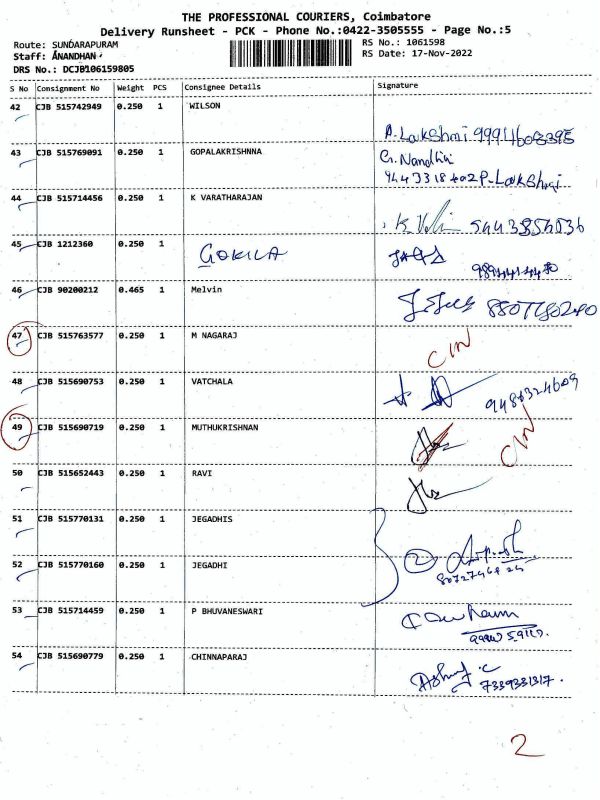 THE PROFESSIONAL COURIERS, Coimbatore
Delivery Runsheet - PCK - Phone No.:0422-3505555 - Page No.:5
Route: SUNDARAPURAM
RS No.: 1061598
Staff: ANANDHAN
RS Date: 17-Nov-2022
DRS No.: DCJB106159805
S No Consignment No Weight PCS Consignee Details Signature
42 CJB 515742949 0.250 1 WILSON
P. Lakshmi
43 CJB 515769091 0.250 1 GOPALAKRISHNNA
G. Nandhini
P. Lakshmi
44 CJB 515714456 0.250 1 K VARATHARAJAN
45 CJB 1212360 0.250 1 GOKILA
46 CJB 90200212 0.465 1 Melvin
47 CJB 515763577 0.250 1 M NAGARAJ CIN
48 CJB 515690753 0.250 1 VATCHALA
49 CJB 515690719 0.250 1 MUTHUKRISHNAN CIN
50 CJB 515652443 0.250 1 RAVI
51 CJB 515770131 0.250 1 JEGADHIS
2
52 CJB 515770160 0.250 1 JEGADHI
53 CJB 515714459 0.250 1 P BHUVANESWARI
54 CJB 515690779 0.250 1 CHINNAPARAJ
7339331317.
2